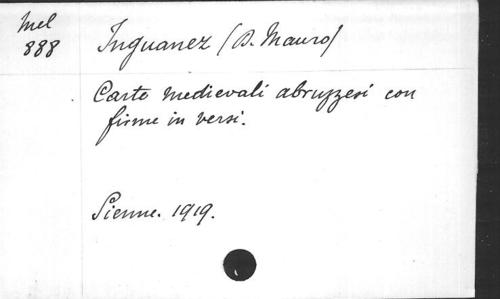 Mel
888
Inguanez (D. Mauro)
Carte medievali abruzzesi con
firme in versi.
Sienne. 1919.